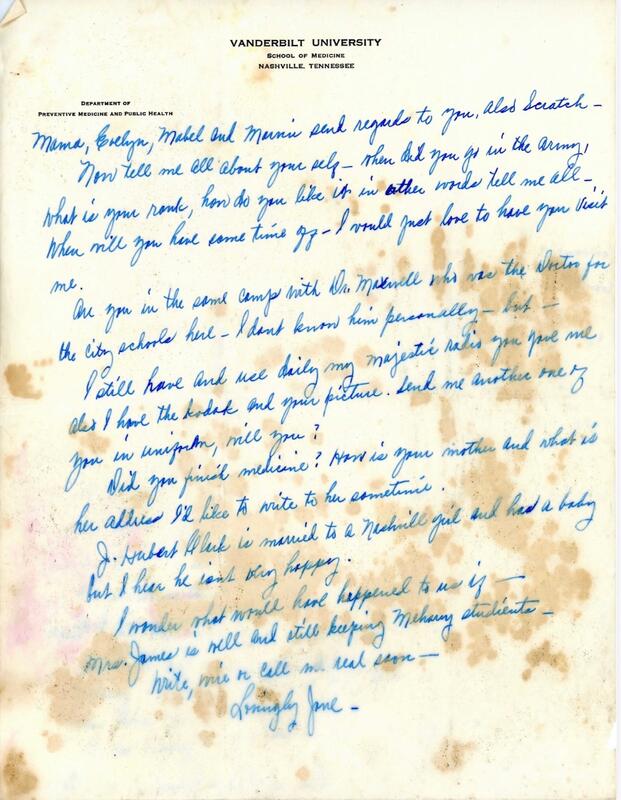 VANDERBILT UNIVERSITY
SCHOOL OF MEDICINE
NASHVILLE, TENNESSEE
DEPARTMENT OF
PREVENTIVE MEDICINE AND PUBLIC HEALTH
Mama, Evelyn, Mabel and send regards to you, also Scratch -
Now tell me all about your self - when did you go in the army,
what is your rank, how do you like it in other words tell me all -
When will you have some time off - I would just love to have you visit
me.
Are you in the same camp with Dr. Maxwell who was the Doctor for
the city schools here - I dont know him personally - but -
I still have and use daily my majestic radio you gave me
also I have the kodak and your picture. Send me another one of
you in uniform, will you?
Did you finish medicine? How is your mother and what is
her address I'd like to write to her sometime.
J. Hubert is married to a Nashville girl and has a baby
but I hear he isnt very happy.
I wonder what would have happened to us if -
Mrs. James is well and still keeping Meharry students -
Write, wire or call me real soon -
Lovingly Jane -